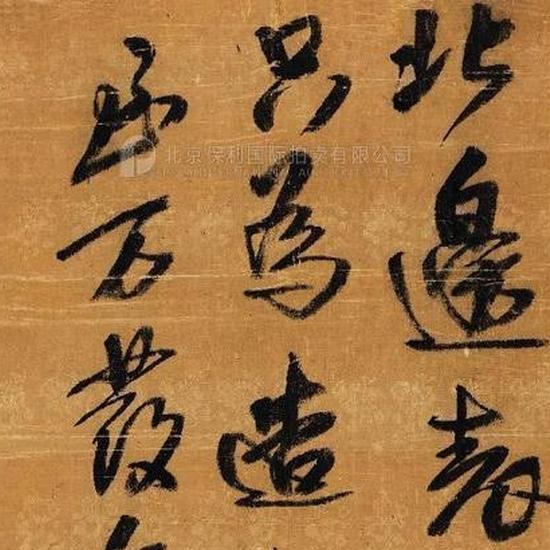 北邊
只為造
万發
北京保利国际拍卖有限公司